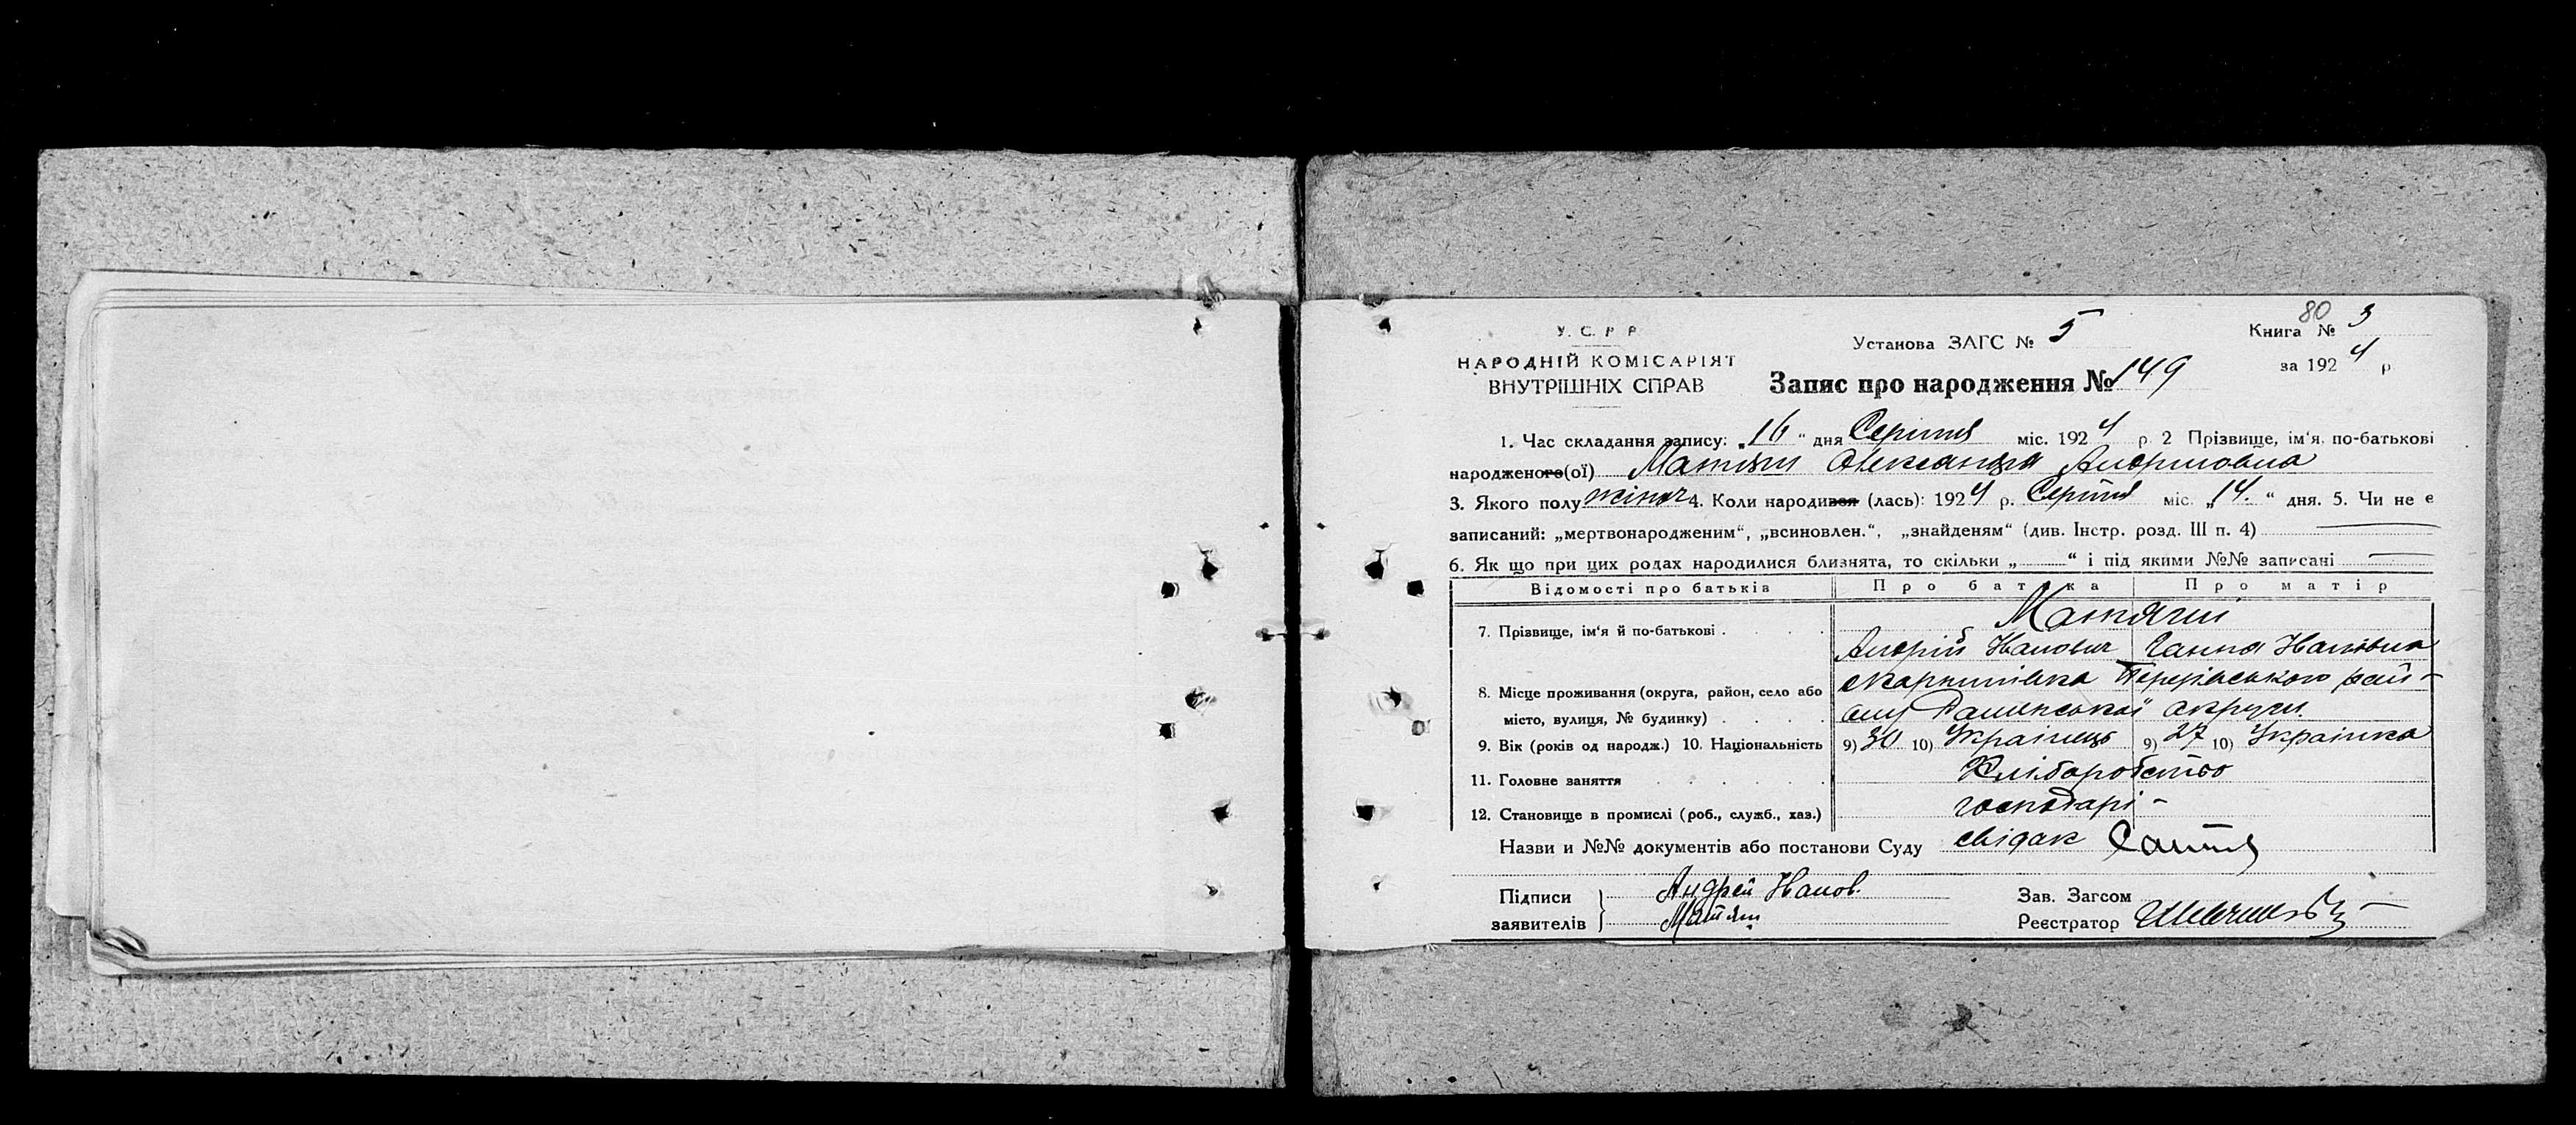 80
У. С. Р Р
НАРОДНІЙ КОМІСАРІЯТ
ВНУТРІШНІХ СПРАВ
Установа ЗАГС № 5
Книга № 3
за 1924 р
Запис про народження № 149
1. Час складання запису: „16“ дня Серпня міс. 1924 р 2 Прізвище, ім'я, по-батькові
народженого(ої) Матяш Олександра Андріївна
3. Якого полу жіноч 4. Коли народився (лась): 1924 р. Серпня міс. „14.“ дня. 5. Чи не є
записаний: „мертвонародженим“, „всиновлен.“, „знайденям“ (див. Інстр. розд. III п. 4)
6. Як що при цих родах народилися близнята, то скільки „ “ і під якими №№ записані
Відомості про батьків Про батька Про матір
7. Прізвище, ім'я й по-батькові Матяши
Андрій Іванович Ганна Іванівна
8. Місце проживання (округа, район, село або
місто, вулиця, № будинку) Роменської округи.
9. Вік (років од народж.) 10. Національність 9) 30 10) Українець 9) 27 10) Українка
11. Головне заняття Хліборобство
12. Становище в промислі (роб., служб., хаз.) господарі
Назви и №№ документів або постанови Суду свідак
Підписи
заявителів } Андрей Иванов.
Матяш
Зав. Загсом
Реєстратор